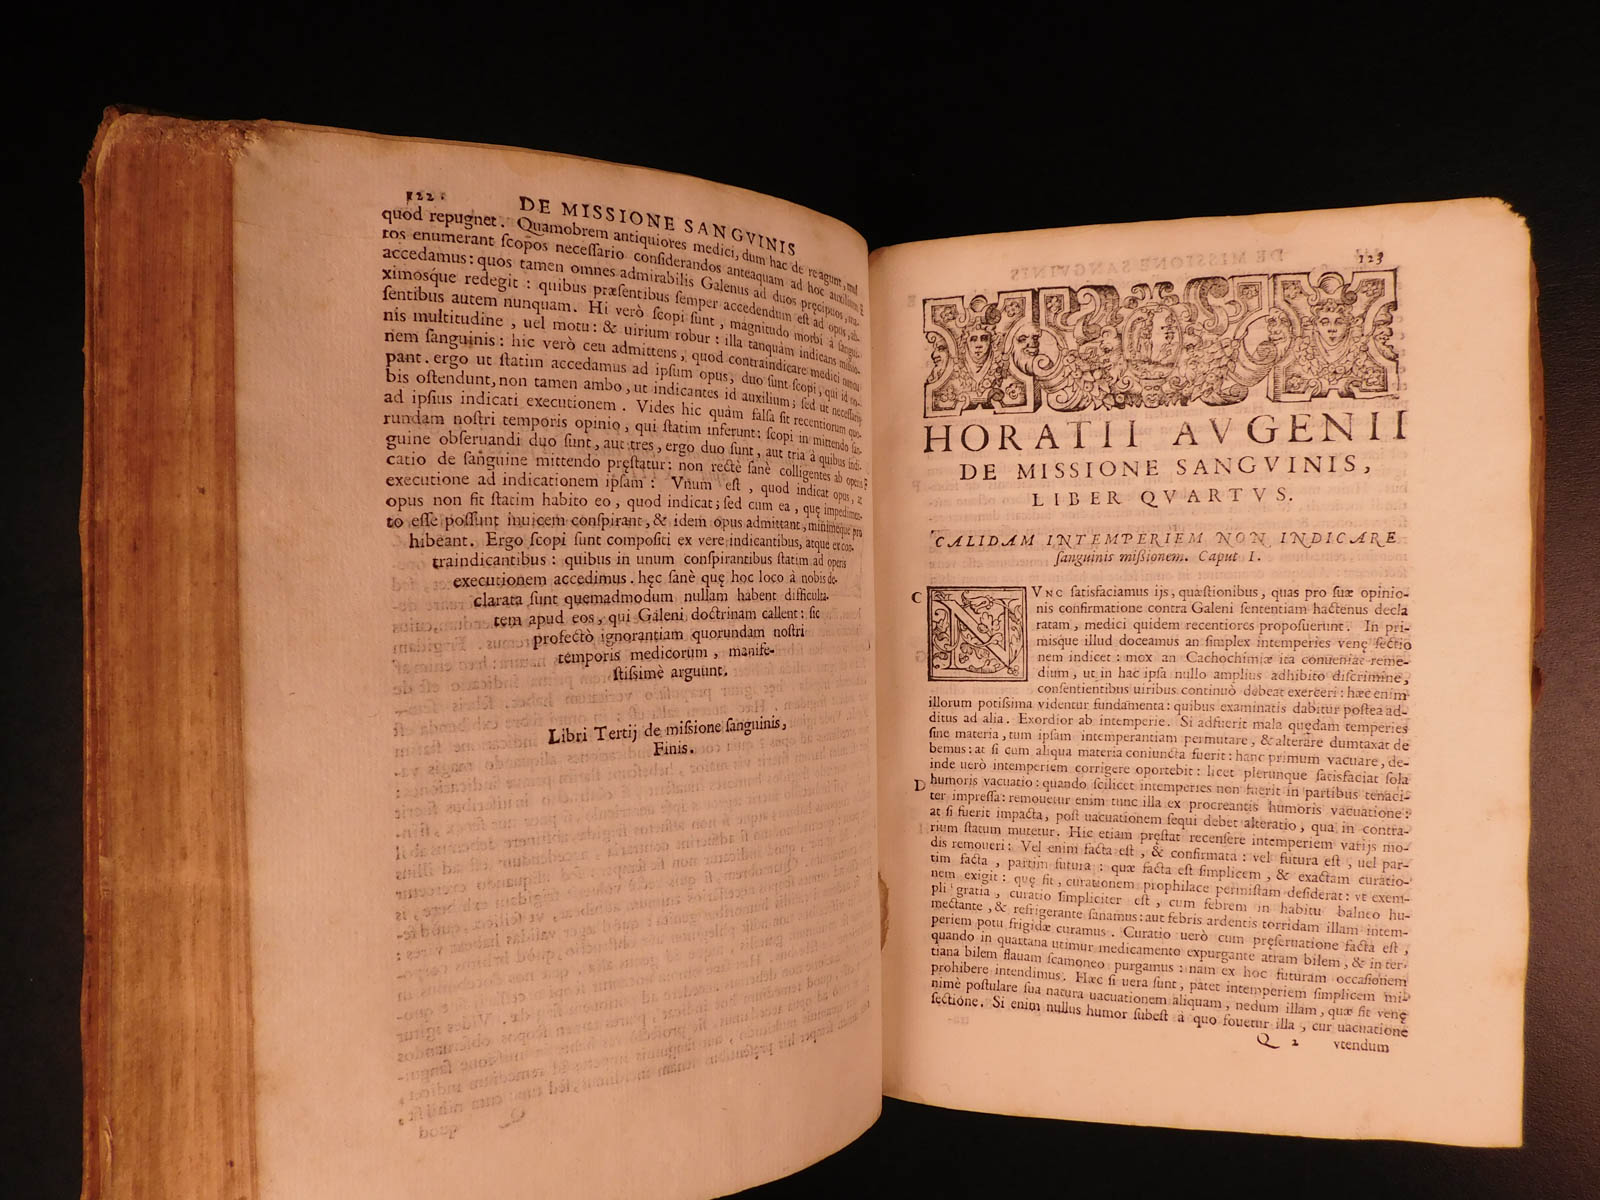 122
DE MISSIONE SANGVINIS
quod repugnet. Quamobrem antiquiores medici, dum hac de re agunt,
tos enumerant scopos necessario considerandos anteaquam ad hoc auxilium
accedamus: quos tamen omnes admirabilis Galenus ad duos pręcipuos,
ximosque redegit: quibus præsentibus semper accedendum est ad opus, ab-
sentibus autem nunquam. Hi verò scopi sunt, magnitudo morbi à sangui-
nis multitudine, uel motu: & uirium robur: illa tanquàm indicans missio-
nem sanguinis: hic verò ceu admittens, quod contraindicare medici nuncu
pant. ergo ut statim accedamus ad ipsum opus, duo sunt scopi, qui id no-
bis ostendunt, non tamen ambo, ut indicantes id auxilium; sed ut necessarij
ad ipsius indicati executionem. Vides hic quàm falsa sit recentiorum quo-
rundam nostri temporis opinio, qui statim inferunt: scopi in mittendo san-
guine obseruandi duo sunt, aut tres, ergo duo sunt, aut tria à quibus indi-
catio de sanguine mittendo pręstatur: non rectè sanè colligentes ab operis
executione ad indicationem ipsam: Vnum est, quod indicat opus, at
opus non fit statim habito eo, quod indicat; sed cum ea, quę impedimen-
to esse possunt inuicem conspirant, & idem opus admittant, minimeque pro
hibeant. Ergo scopi sunt compositi ex vere indicantibus, atque ex con-
traindicantibus: quibus in unum conspirantibus statim ad operis
executionem accedimus. hęc sanè quę hoc loco à nobis de-
clarata sunt quemadmodum nullam habent difficulta-
tem apud eos, qui Galeni doctrinam callent: sic
profectò ignorantiam quorundam nostri
temporis medicorum, manife-
stissimè arguunt.
Libri Tertij de missione sanguinis,
Finis.
123
HORATII AVGENII
DE MISSIONE SANGVINIS,
LIBER QVARTVS.
CALIDAM INTEMPERIEM NON INDICARE
sanguinis missionem. Caput I.
C
NVNC satisfaciamus ijs, quæstionibus, quas pro suæ opinio-
nis confirmatione contra Galeni sententiam hactenus decla
ratam, medici quidem recentiores proposuerunt. In pri-
misque illud doceamus an simplex intemperies venę sectio
nem indicet: mox an Cachochimiæ ita conueniat reme-
dium, ut in hac ipsa nullo amplius adhibito discrimine,
consentientibus uiribus continuò debeat exerceri: hæc enim
illorum potissima videntur fundamenta: quibus examinatis dabitur postea ad-
ditus ad alia. Exordior ab intemperie. Si adfuerit mala quędam temperies
sine materia, tum ipsam intemperantiam permutare, & alterare dumtaxat de
bemus: at si cum aliqua materia coniuncta fuerit: hanc primum vacuare, de-
inde uerò intemperiem corrigere oportebit: licet plerunque satisfaciat sola
D
humoris vacuatio: quando scilicet intemperies non fuerit in partibus tenaci-
ter impressa: remouetur enim tunc illa ex procreantis humoris vacuatione:
at si fuerit impacta, post uacuationem sequi debet alteratio, qua in contra-
rium statum mutetur. Hic etiam pręstat recensere intemperiem varijs mo-
dis remoueri: Vel enim facta est, & confirmata: vel futura est, uel par-
tim facta, partim futura: quæ facta est simplicem, & exactam curatio-
nem exigit: quę fit, curationem prophilace permistam desiderat: vt exem-
pli gratia, curatio simpliciter est, cum febrem in habitu balneo hu-
mectante, & refrigerante sanamus: aut febris ardentis torridam illam intem-
periem potu frigidæ curamus. Curatio uerò cum pręseruatione facta est,
quando in quartana utimur medicamento expurgante atram bilem, & in ter-
tiana bilem flauam scamoneo purgamus: nam ex hoc futuram occasionem
prohibere intendimus. Hæc si uera sunt, patet intemperiem simplicem mi-
nimè postulare sua natura uacuationem aliquam, nedum illam, quæ fit venę
sectione. Si enim nullus humor subest à quo fouetur illa, cur uacuatione
Q 2
vtendum